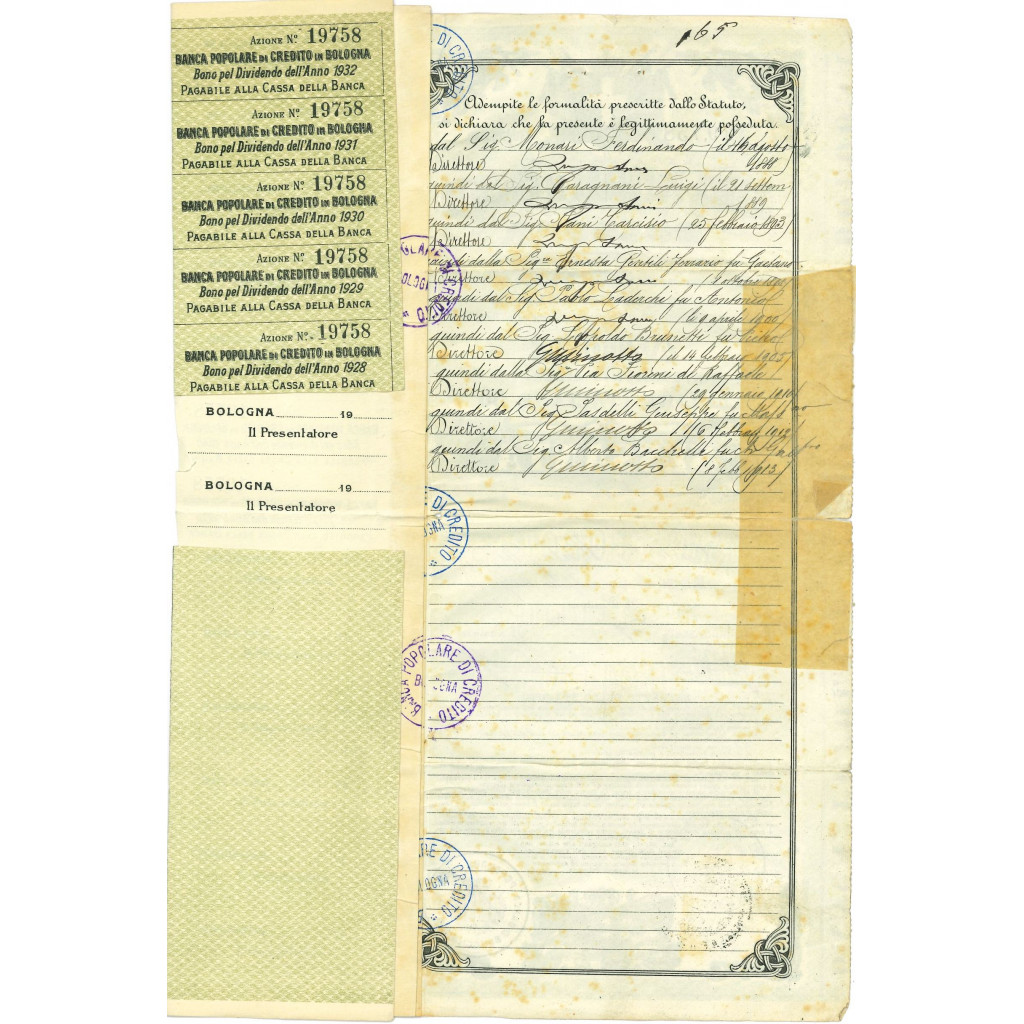 AZIONE Nº 19758
BANCA POPOLARE DI CREDITO IN BOLOGNA
Bono pel Dividendo dell'Anno 1932
PAGABILE ALLA CASSA DELLA BANCA
AZIONE Nº 19758
BANCA POPOLARE DI CREDITO IN BOLOGNA
Bono pel Dividendo dell'Anno 1931
PAGABILE ALLA CASSA DELLA BANCA
AZIONE Nº 19758
BANCA POPOLARE DI CREDITO IN BOLOGNA
Bono pel Dividendo dell'Anno 1930
PAGABILE ALLA CASSA DELLA BANCA
AZIONE Nº 19758
BANCA POPOLARE DI CREDITO IN BOLOGNA
Bono pel Dividendo dell'Anno 1929
PAGABILE ALLA CASSA DELLA BANCA
AZIONE Nº 19758
BANCA POPOLARE DI CREDITO IN BOLOGNA
Bono pel Dividendo dell'Anno 1928
PAGABILE ALLA CASSA DELLA BANCA
BOLOGNA 19
Il Presentatore
BOLOGNA 19
Il Presentatore
165
Adempite le formalità prescritte dallo Statuto,
si dichiara che la presente è legittimamente posseduta.
dal Sig. Monari Ferdinando (il 16 Agosto
Direttore 1888
quindi dal Sig. Luigi (il 21 settem
Direttore
quindi dal Sig. Tarcisio (25 febbraio 1893)
Direttore
quindi dalla Sig.ra Ernesta Gentili Ferrario fu Gaetano
Direttore
quindi dal Sig. Paolo Laderchi fu Antonio
Direttore aprile 1900
quindi dal Sig. Brunetti fu
Direttore (il 14 febbraio 1905)
quindi dalla Fiorini di Raffaele
Direttore (29 Gennaio 1910)
quindi dal Sig. Sasdelli Giuseppe fu
Direttore (16 febbraio 1912)
quindi dal Sig. Alberto Bacchelli fu
Direttore 1913)
DI CREDITO
POPOLARE DI CREDITO
BOLOGNA
DI CREDITO
BANCA POPOLARE DI CREDITO
BOLOGNA
DI CREDITO
BOLOGNA